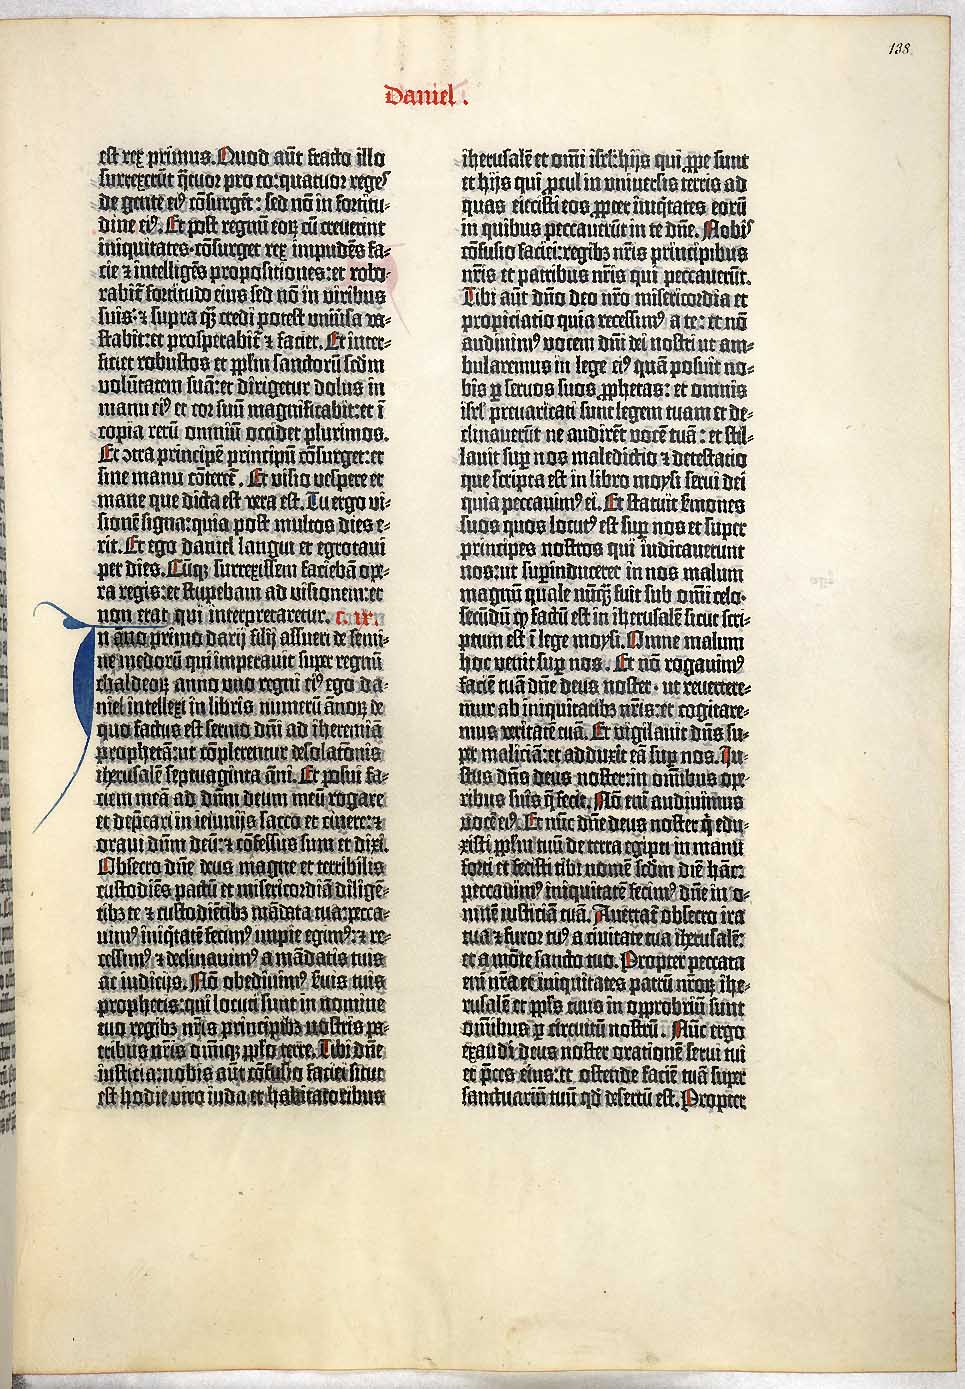 138
Daniel .
est rex primus. Quod aūt fracto illo
surrexerūt q̄tuor pro eo: quatuor reges
de gente eiꝰ cōsurgēt: sed nō in fortitu-
dine eiꝰ. Et post regnū eoꝝ cū creverint
iniquitates·cōsurget rex impudēs fa-
cie ⁊ intelligēs propositiones: et robo-
rabit̄ fortitudo eius sed nō in viribus
suis: ⁊ supra qꝫ credi potest univ̄sa va-
stabit: et prosperabit̄ ⁊ faciet. Et inter-
ficiet robustos et pplm sanctorū scdm
volūtatem suā: et dirigetur dolus in
manu eiꝰ et cor suū magnificabit: et ī
copia rerū omniū occidet plurimos.
Et ↄtra principē principū cōsurget: et
sine manu cōteret̄. Et visio vespere et
mane que dicta est vera est. Tu ergo vi-
sionē signa: quia post multos dies e-
rit. Et ego daniel langui et egrotavi
per dies. Cūqꝫ surrexissem faciebā ope-
ra regis: et stupebam ad visionem: et
non erat qui interpretaretur. c. ix.
In āno primo darij filij assueri de semi-
ne medorū qui imperavit super regnū
chaldeoꝝ anno uno regni eiꝰ ego da-
niel intellexi in libris numerū ānoꝝ de
quo factus est sermo dn̄i ad iheremiā
prophetā: ut cōplerentur desolatōnis
iherusalē septuaginta āni. Et posui fa-
ciem meā ad dn̄m deum meū rogare
et dep̄cari in ieiunijs sacco et cinere: ⁊
oravi dn̄m deū: ⁊ cōfessus sum et dixi.
Obsecro dn̄e deus magne et terribilis
custodiēs pactū et misericordiā diligē-
tibꝫ te ⁊ custodiētibꝫ mādata tua: pecca-
vimꝰ iniq̇tatē fecimꝰ impie egimꝰ: ⁊ re-
cessimꝰ ⁊ declinavimꝰ a mādatis tuis
ac iudicijs. Nō obedivimꝰ s̄vis tuis
prophetis: qui locuti sunt in nomine
tuo regibꝫ nr̄is principibꝫ nostris pa-
tribus nr̄is om̄iqꝫ pplo terre. Tibi dn̄e
iusticia: nobis aūt cōfusio faciei sicut
est hodie viro iuda et habitatoribus
iherusalē et om̄i isrl: hijs qui ꝓpe sunt
et hijs qui ꝓcul in universis terris ad
quas eiecisti eos ꝓpter iniq̇tates eorū
in quibus peccaverūt in te dn̄e. Nobis
cōfusio faciei: regibꝫ nr̄is principibus
nr̄is et patribus nr̄is qui peccaverūt.
Tibi aūt dn̄o deo nr̄o misericordia et
propiciatio quia recessimꝰ a te: et nō
audivimꝰ vocem dn̄i dei nostri ut am-
bularemus in lege eiꝰ quā posuit no-
bis ꝑ servos suos ꝓphetas: et omnis
isrl̄ prevaricati sunt legem tuam et de-
clinaverūt ne audirēt vocē tuā: et stil-
lavit suꝑ nos maledictio ⁊ detestatio
que scripta est in libro moysi servi dei
quia peccavimꝰ ei. Et statuit s̄mones
suos quos locutꝰ est suꝑ nos et super
principes nostros qui iudicaverunt
nos: ut suꝑinduceret in nos malum
magnū quale nūqꝫ fuit sub om̄i celo·
secūdū qꝫ factū est in iherusalē sicut scri-
ptum est ī lege moysi. Omne malum
hoc venit suꝑ nos. Et nō rogavimꝰ
faciē tuā dn̄e deus noster· ut revertere-
mur ab iniquitatibꝫ nr̄is: et cogitare-
mus veritatē tuā. Et vigilavit dn̄s su-
per maliciā: et adduxit eā suꝑ nos. Iu-
stus dn̄s deus noster: in om̄ibus ope-
ribus suis q̄ fecit. Nō eni audivimus
vocē eiꝰ. Et nūc dn̄e deus noster q̇ edu-
xisti pplm tuū de terra egipti in manu
forti et fecisti tibi nomē scdm diē hāc:
peccavimꝰ iniquitatē fecimꝰ dn̄e in o-
mnē iusticiā tuā. Avertat̄ obsecro ira
tua ⁊ furor tuꝰ a civitate tua iherusalē:
et a mōte sancto tuo. Propter peccata
eni nr̄a et iniquitates patrū nr̄oꝝ ihe-
rusalē et ppls tuus in opprobriū sunt
om̄ibus ꝑ circuitū nostrū. Nūc ergo
exaudi deus noster orationē servi tui
et p̄ces eius: et ostende faciē tuā super
sanctuariū tuū qd̄ desertū est. Propter